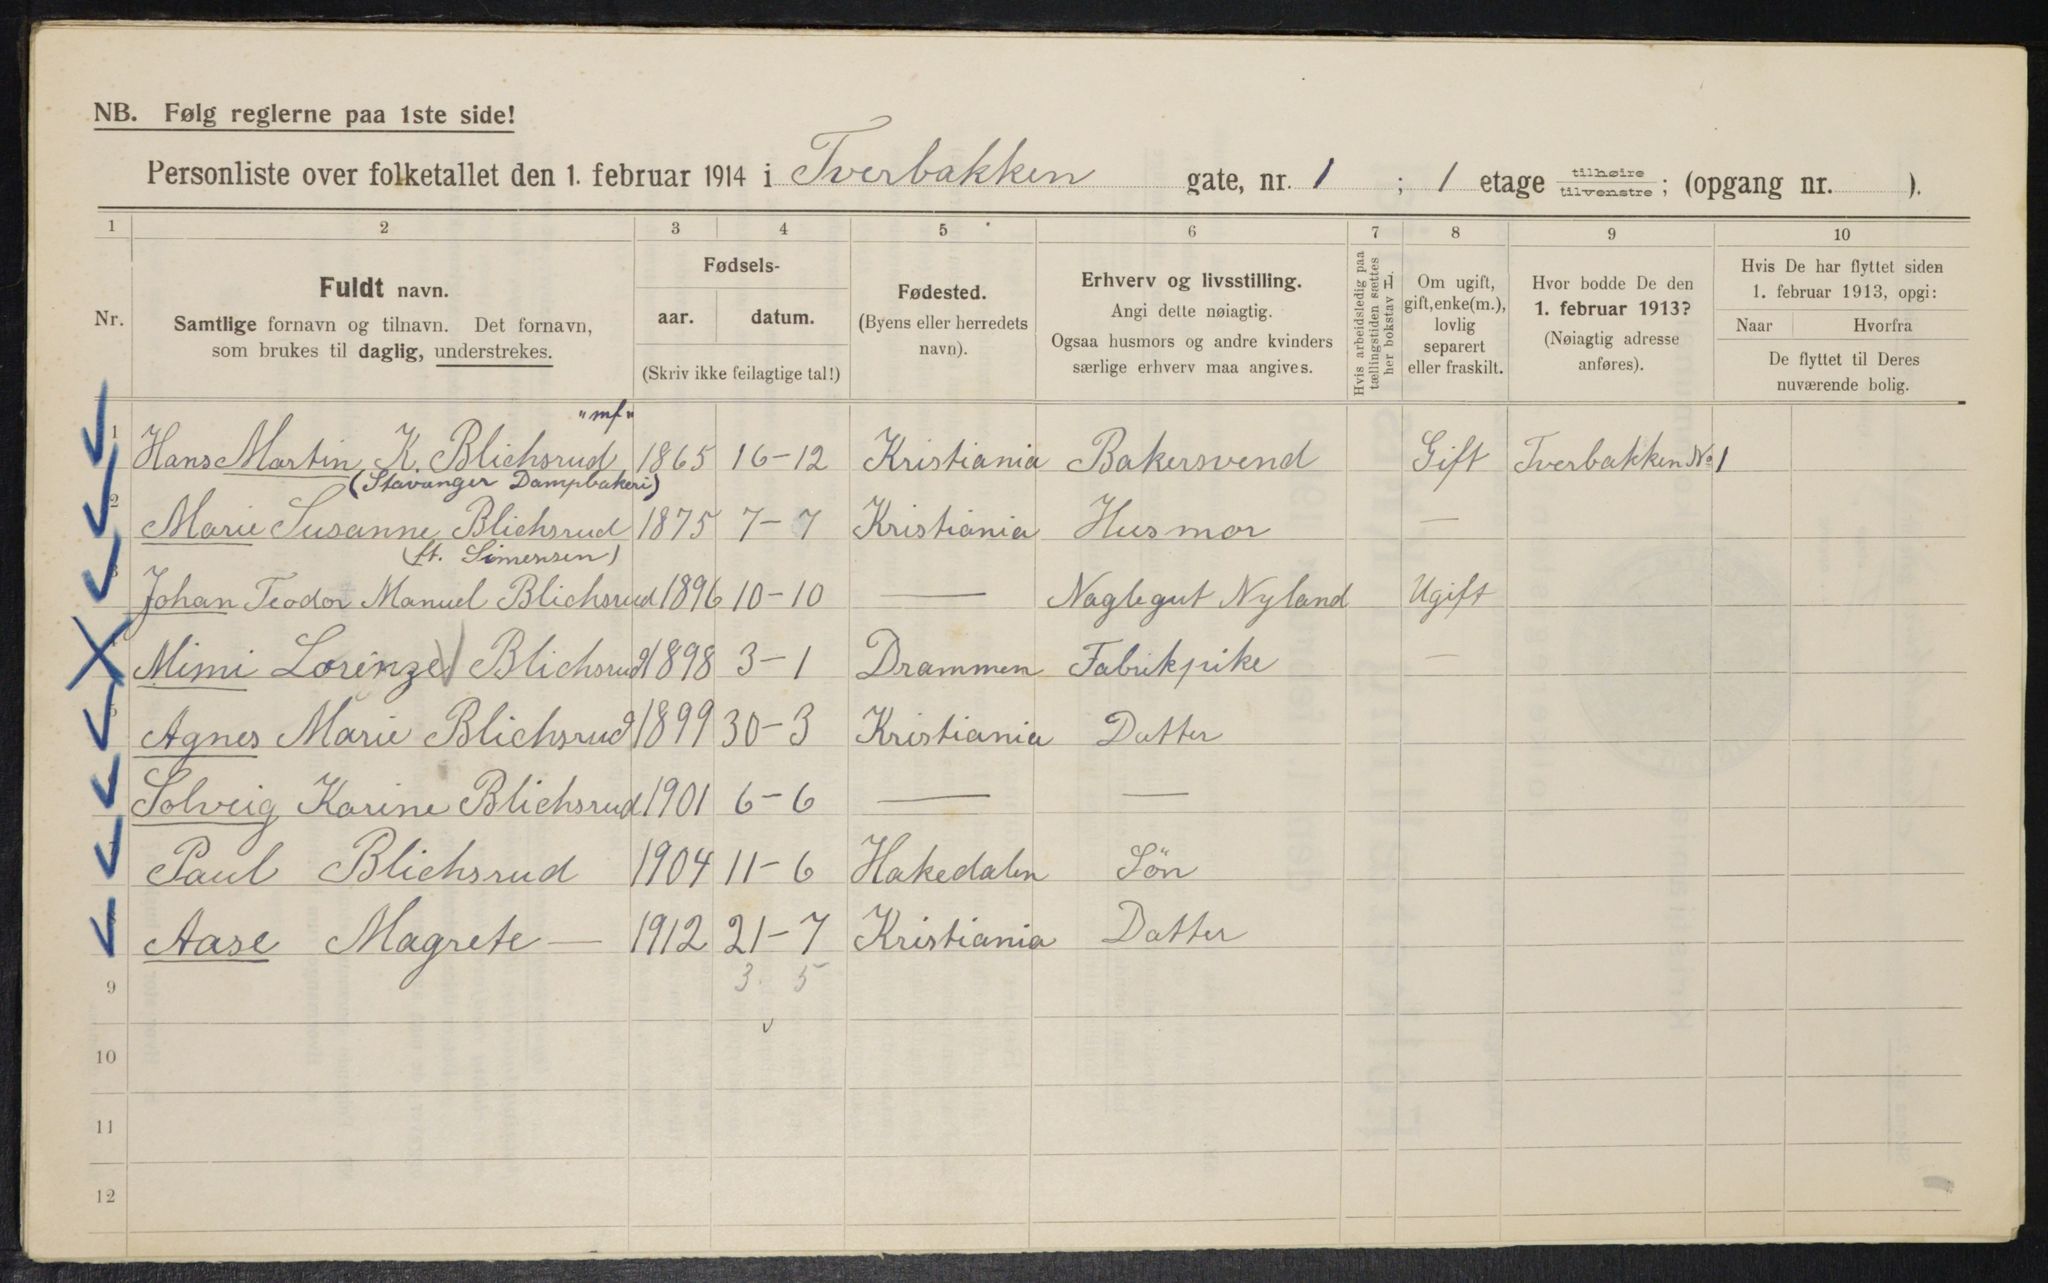 NB. Følg reglerne paa 1ste side!
Personliste over folketallet den 1. februar 1914 i Tverbakken gate, nr. 1 ; 1 etage tilhøire tilvenstre ; (opgang nr. ).
1 2 3 4 5 6 7 8 9 10
Nr.
Fuldt navn.
Samtlige fornavn og tilnavn. Det fornavn,
som brukes til daglig, understrekes.
Fødsels-
aar. datum.
(Skriv ikke feilagtige tal!)
Fødested.
(Byens eller herredets
navn).
Erhverv og livsstilling.
Angi dette nøiagtig.
Ogsaa husmors og andre kvinders
særlige erhverv maa angives.
Hvis arbeidsledig paa
tællingstiden sættes
her bokstav L.
Om ugift,
gift, enke(m.),
lovlig
separert
eller fraskilt.
Hvor bodde De den
1. februar 1913?
(Nøiagtig adresse
anføres).
Hvis De har flyttet siden
1. februar 1913, opgi:
Naar Hvorfra
De flyttet til Deres
nuværende bolig.
"mf"
1 Hans Martin K. Blichsrud 1865 16-12 Kristiania Bakersvend Gift Tverbakken No 1
(Stavanger Dampbakeri)
2 Marie Susanne Blichsrud 1875 7-7 Kristiania Husmor —
(ft. Simensen)
3 Johan Teodor Manuel Blichsrud 1896 10-10 — Naglegut Nyland Ugift
Mimi Lorinze Blichsrud 1898 3-1 Drammen Fabrikpike —
5 Agnes Marie Blichsrud 1899 30-3 Kristiania Datter
Solveig Karine Blichsrud 1901 6-6 — —
Paul Blichsrud 1904 11-6 Hakedalen Sön
Aase Magrete — 1912 21-7 Kristiania Datter
9 3. 5
10
11
12